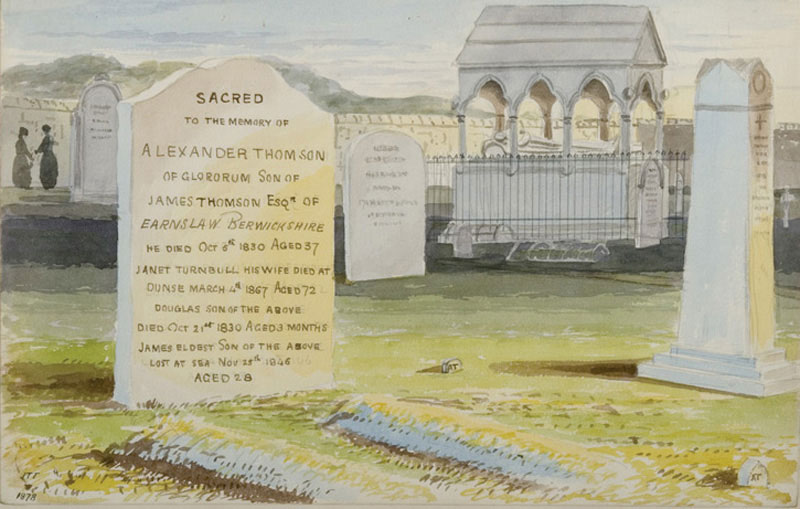 SACRED
TO THE MEMORY OF
ALEXANDER THOMSON
OF GLORORUM SON OF
JAMES THOMSON ESQR OF
EARNSLAW BERWICKSHIRE
HE DIED OCT 3RD 1830 AGED 37
JANET TURNBULL HIS WIFE DIED AT
DUNSE MARCH 4th 1867 AGED 72
DOUGLAS SON OF THE ABOVE
DIED OCT 21st 1830 AGED 3 MONTHS
JAMES ELDEST SON OF THE ABOVE
LOST AT SEA NOV 25th 1846
AGED 28
AT
AT
1878